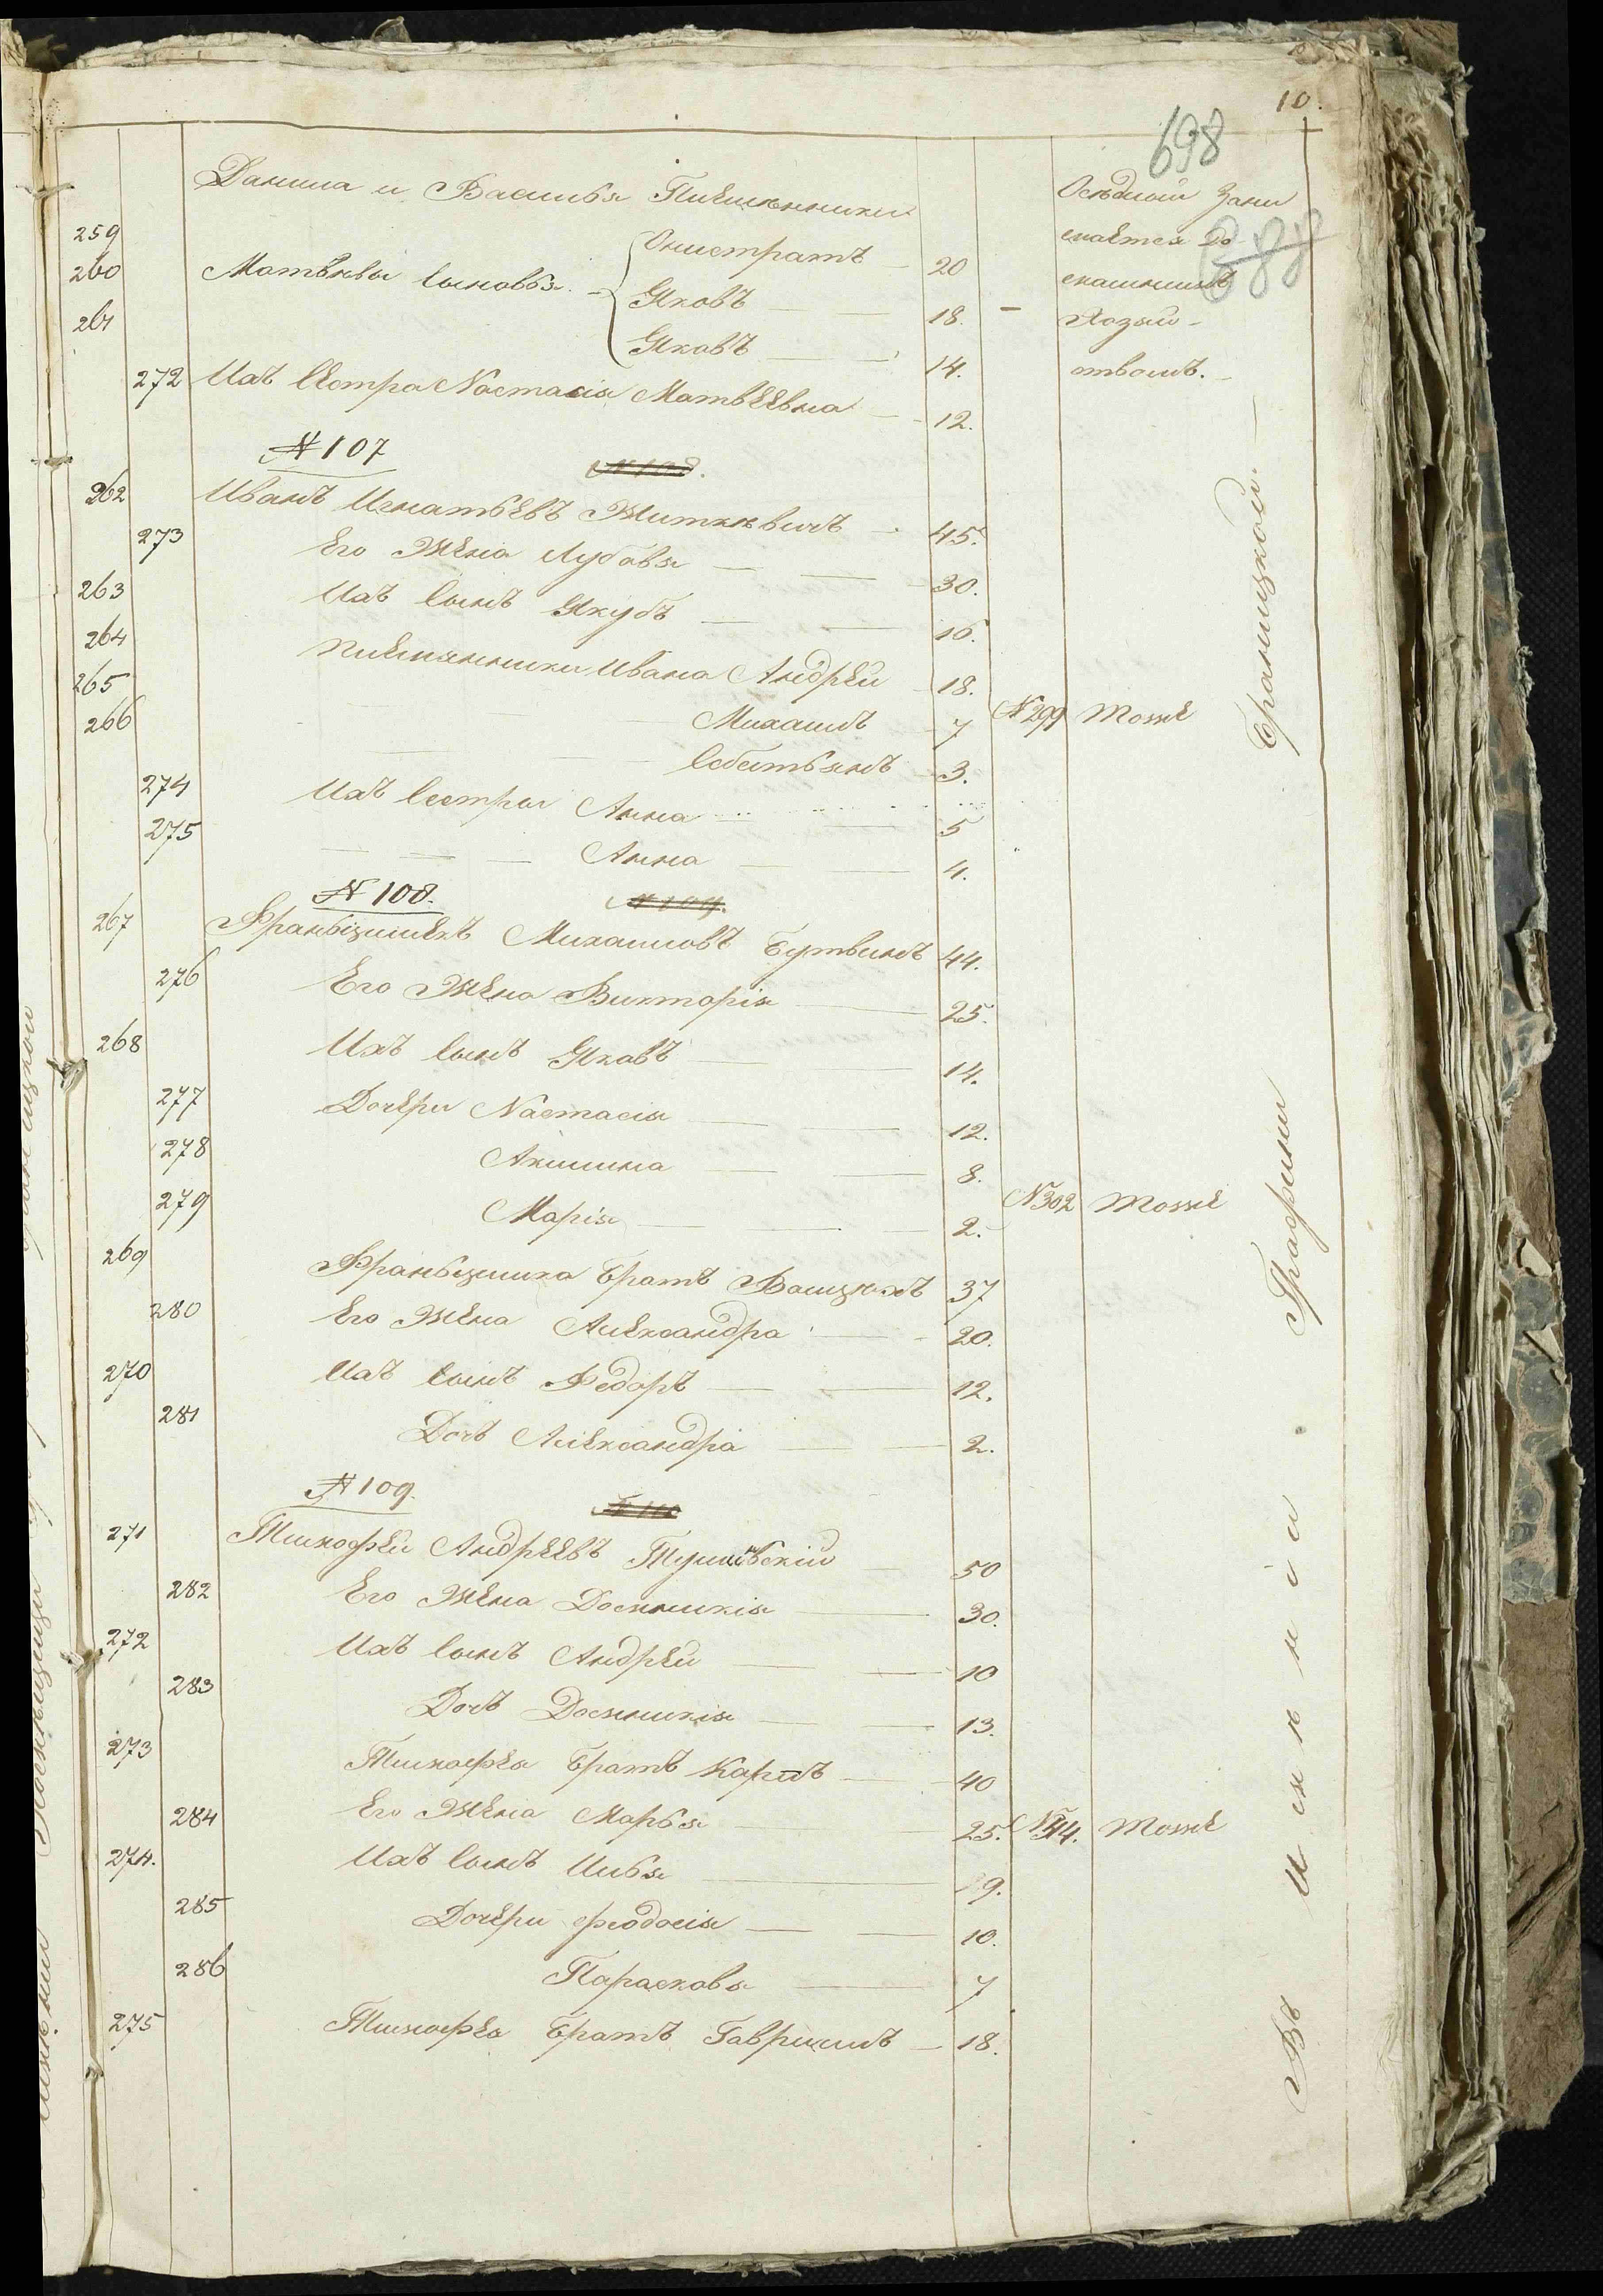 10.
698
Данила и Василья Племянники
Осѣдлый Зани
мается до
машнимъ
Хозяй-
ствомъ.
259 Онистратъ 20
260 Матвѣя Сыновья Яковъ 18. -
261 Яковъ 14.
272 Ихъ Сестра Настасія Матвѣевна 12.
№ 107
262 Иванъ Игнатьевъ Житкевичъ 45.
273 Его Жена Лубовья 30.
263 Ихъ Сынъ Якубъ 16.
264 Племянники Ивана Андрей 18.
265 Михаилъ 7 № 299 Тоже
266 Себетьянъ 3.
274 Ихъ Сестры Анна 5
275 Анна 4.
№ 108. № 109.
267 Франьцишекъ Михаиловъ Бутвинъ 44.
276 Его Жена Викторія 25.
268 Ихъ Сынъ Яковъ 14.
277 Дочери Настасія 12.
278 Акилина 8.
279 Марія 2. № 302 Тоже
269 Франьцишка Братъ Вашзюкъ 37
280 Его Жена Александра 20.
270 Ихъ Сынъ Федоръ 12.
281 Дочь Александра 2.
№ 109. № 110
271 Тимофей Андреевъ 50
282 Его Жена Домникія 30.
272 Ихъ Сынъ Андрей 10
283 Дочь Домникія 13.
273 Тимофея Братъ Карпъ 40
284 Его Жена Марья 25. № 314. Тоже
274. Ихъ Сынъ Илья 19.
285 Дочери Феодосія 10.
286 Парасковя 7
275 Тимофея Братъ Гаврилъ 18.
Въ имѣніи Графини Браницкой